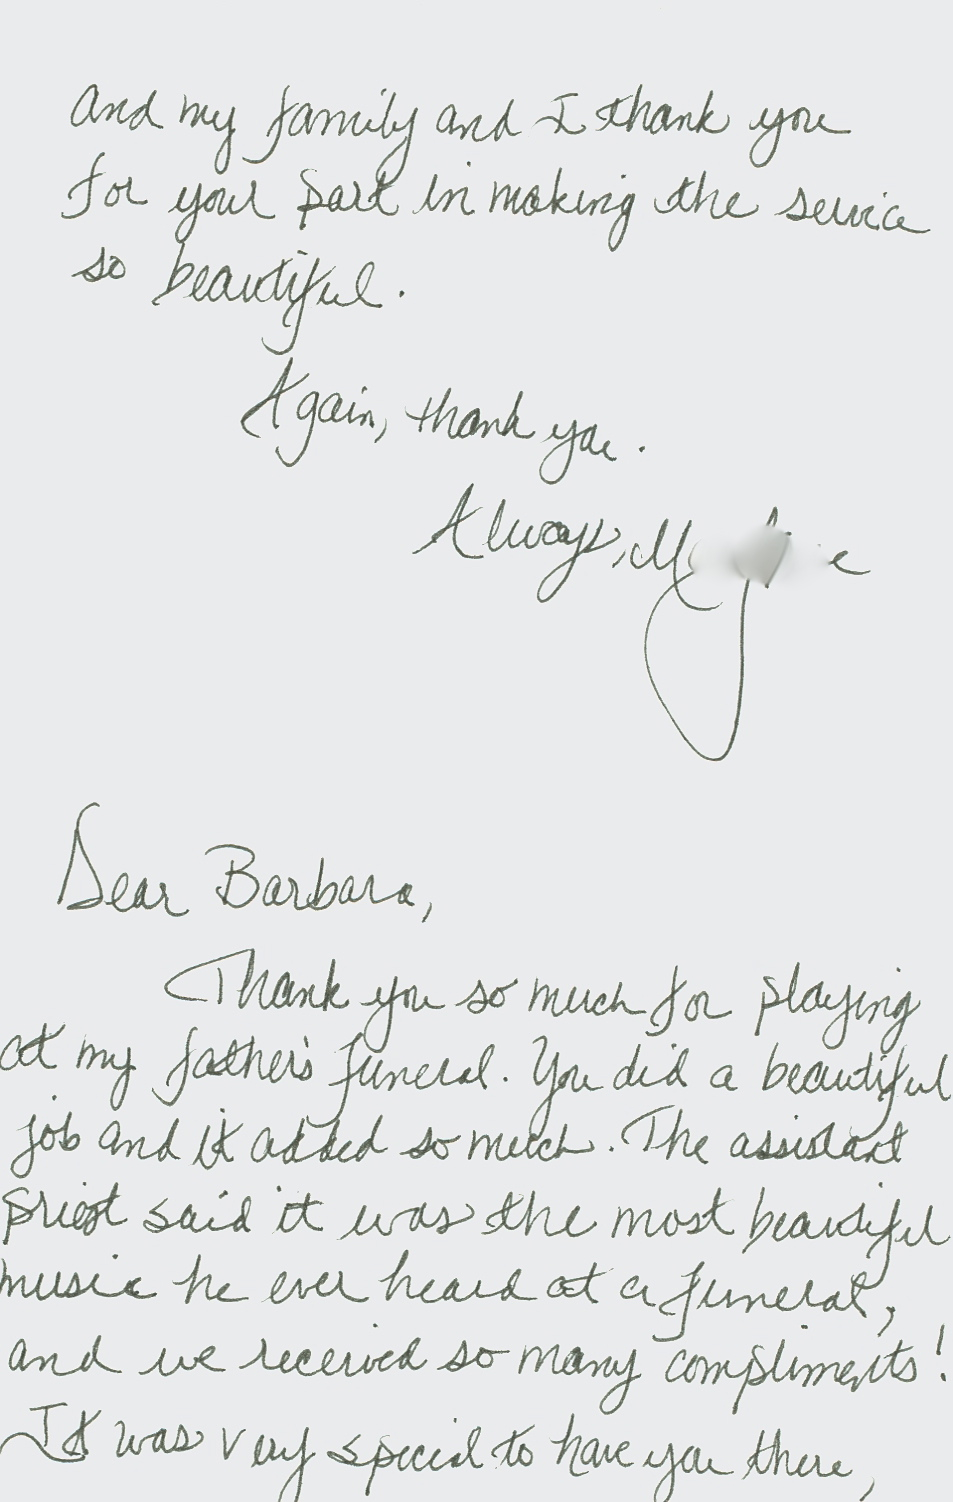 and my family and I thank you
for your part in making the service
so beautiful.
Again, thank you.
Always,
Dear Barbara,
Thank you so much for playing
at my father's funeral. You did a beautiful
job and it added so much. The assistant
priest said it was the most beautiful
music he ever heard at a funeral,
and we received so many compliments!
It was very special to have you there,